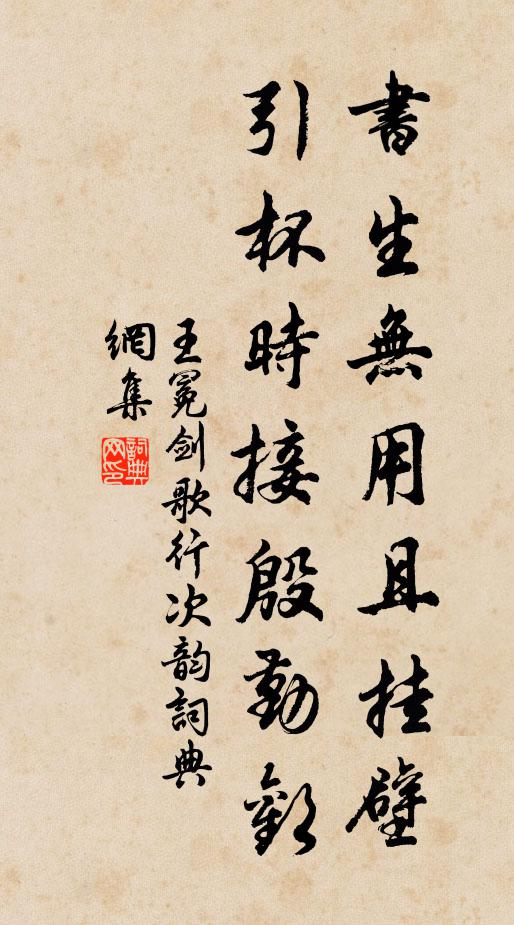 書生無用且挂壁
引杯時接殷勤
王冕劍歌行次韵詞典
網集
詞典網印